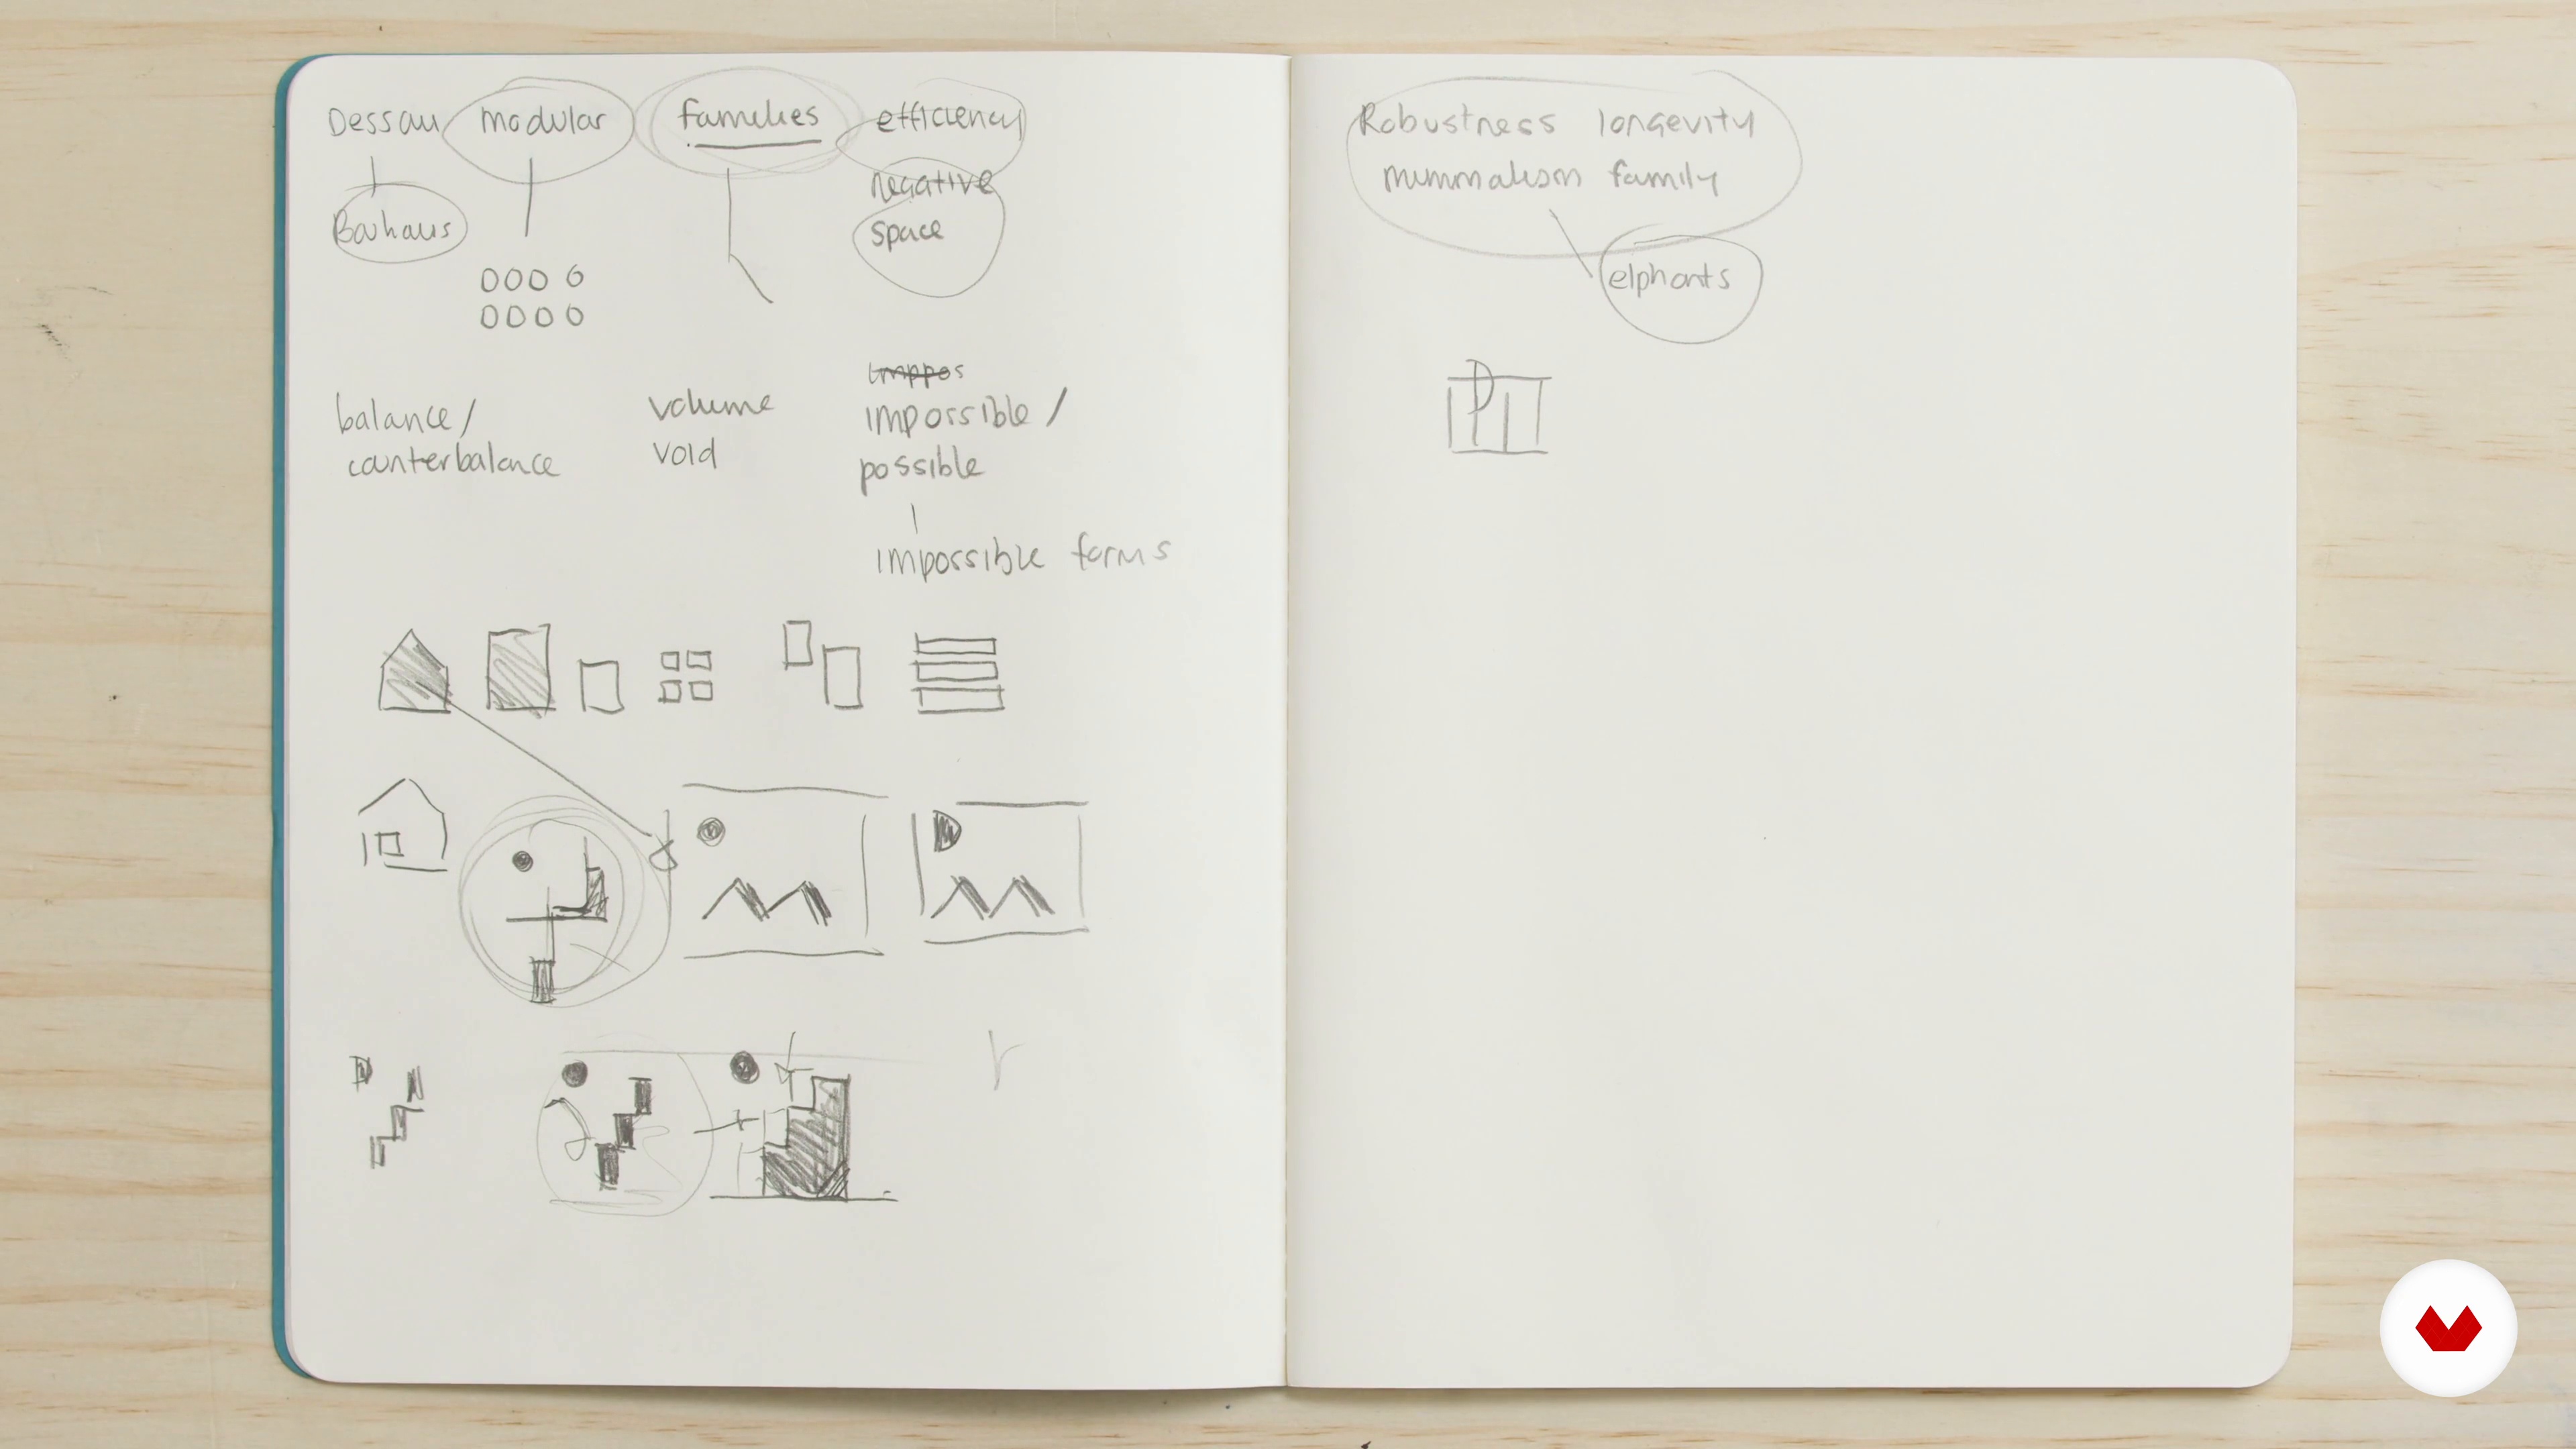 Dessau modular families efficiency
negative
Bauhaus space
0000
0000
imppos
balance/ volume impossible /
counterbalance void possible
impossible forms
r
Robustness longevity
minimalism family
elphants